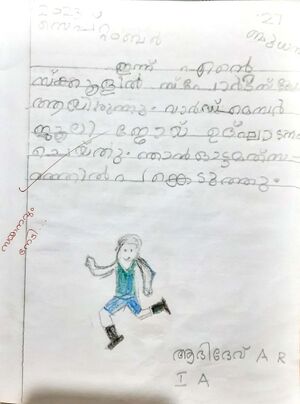 2023
27
സെപ്റ്റംബർ
ബുധൻ
ഇന്ന് എന്റെ
സ്ക്കൂളിൽ സ്പോർട്സ് ഡേ
ആയിരുന്നു. വാർഡ് മെമ്പർ
ജൂലി ജോയ് ഉദ്ഘാടനം
ചെയ്തു. ഞാൻ ഓട്ടമത്സ
രത്തിൽ പങ്കെടുത്തു.
ആദിദേവ് A R
I A